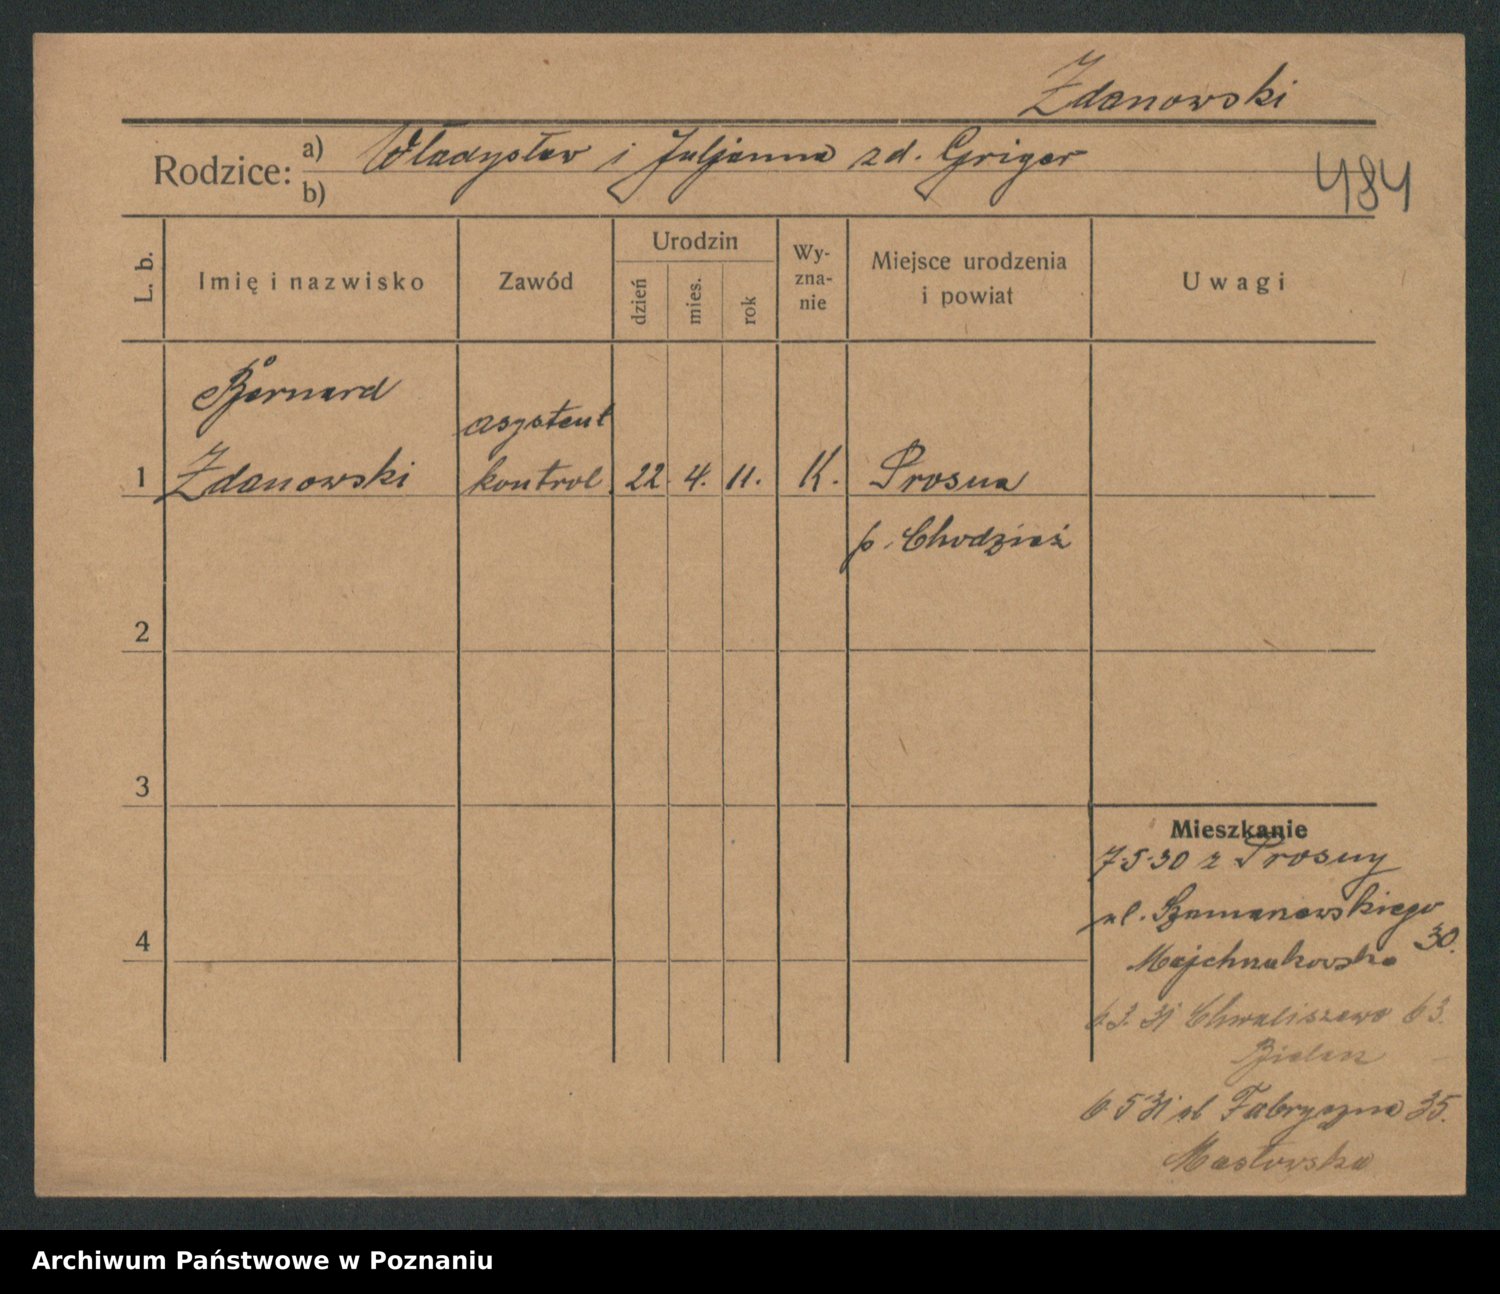 Zdanowski
Rodzice: a) Władysław i Juljanna zd. Grigor
b)
484
L. b.
Imię i nazwisko
Zawód
Urodzin
dzień
mies.
rok
Wy-
zna-
nie
Miejsce urodzenia
i powiat
Uwagi
Bernard
asystent
1 Zdanowski kontrol. 22. 4. 11. K. Prosna
p. Chodzież
2
3
Mieszkanie
7.5.30 z Prosny
ul. Szamarzewskiego
30.
4
Majchrzakowska
6.3.31 Chwaliszewo 63.
6 5 31 ul Fabryczna 35.
Masłowska
Archiwum Państwowe w Poznaniu